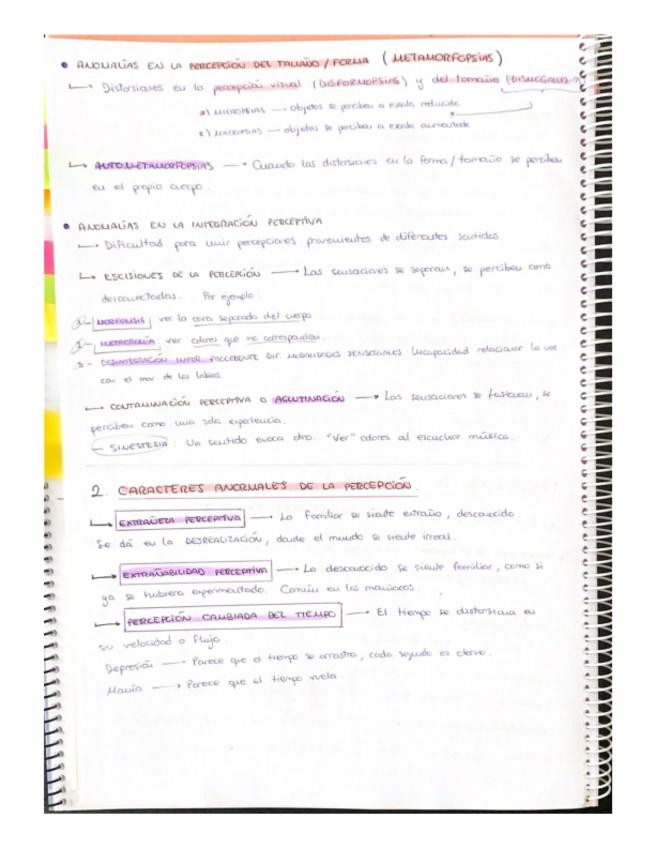 • ANOMALÍAS EN LA PERCEPCIÓN DEL TAMAÑO / FORMA (METAMORFOPSIAS)
↳ Distorsiones en la percepción visual (DISFORMOPSIAS) y del tamaño
a) MICROPSIAS → objetos se perciben a escala reducida
c) MACROPSIAS → objetos se perciben a escala aumentada
↳ AUTOMETAMORFOPSIAS → Cuando las distorsiones en la forma/tamaño se perciben
en el propio cuerpo.
• ANOMALÍAS EN LA INTEGRACIÓN PERCEPTIVA
↳ Dificultad para unir percepciones provenientes de diferentes sentidos.
↳ ESCISIONES DE LA PERCEPCIÓN → Las sensaciones se separan, se perciben como
desconectadas. Por ejemplo:
MORFOLISIS, ver la cara separada del cuerpo
2- METACROMÍA, ver colores que no corresponden.
3- DESINTEGRACIÓN INFOR. PROCEDENTE DIF. SENSORIALES Incapacidad relacionar la voz
con el mov. de los labios.
↳ CONTAMINACIÓN PERCEPTIVA O AGLUTINACIÓN → Las sensaciones se fusionan, se
perciben como una sola experiencia.
- SINESTESIA: Un sentido evoca otro. "Ver" colores al escuchar música.
2. CARACTERES ANORMALES DE LA PERCEPCIÓN.
↳ EXTRAÑEZA PERCEPTIVA → Lo familiar se siente extraño, desconocido.
Se dá en la DESREALIZACIÓN, donde el mundo se siente irreal.
↳ EXTRAÑABILIDAD PERCEPTIVA → Lo desconocido se siente familiar, como si
ya se hubiera experimentado. Común en los maníacos.
↳ PERCEPCIÓN CAMBIADA DEL TIEMPO → El tiempo se distorsiona en
su velocidad o flujo.
Depresión → Parece que el tiempo se arrastra, cada segundo es eterno.
Manía → Parece que el tiempo vuela.